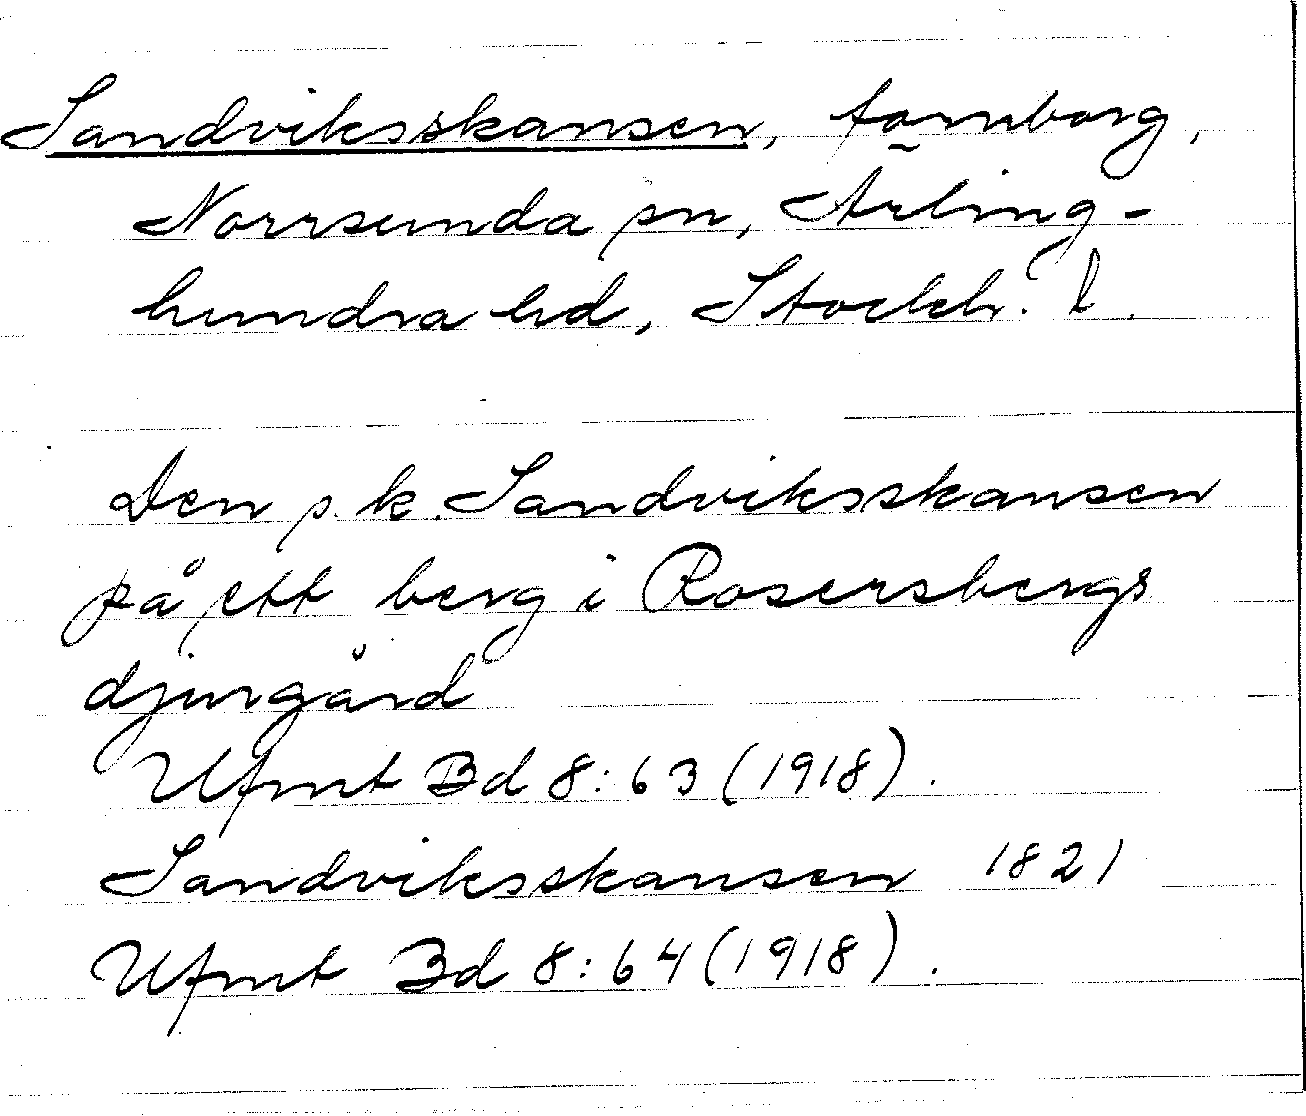 Sandviksskansen, fornborg,
Norrsunda sn, Ärling-
hundra hd, Stockh. l.
Den s.k. Sandviksskansen
på ett berg i Rosersbergs
djurgård
Ufmt Bd 8:63 (1918).
Sandviksskansen 1821
Ufmt Bd 8:64 (1918).